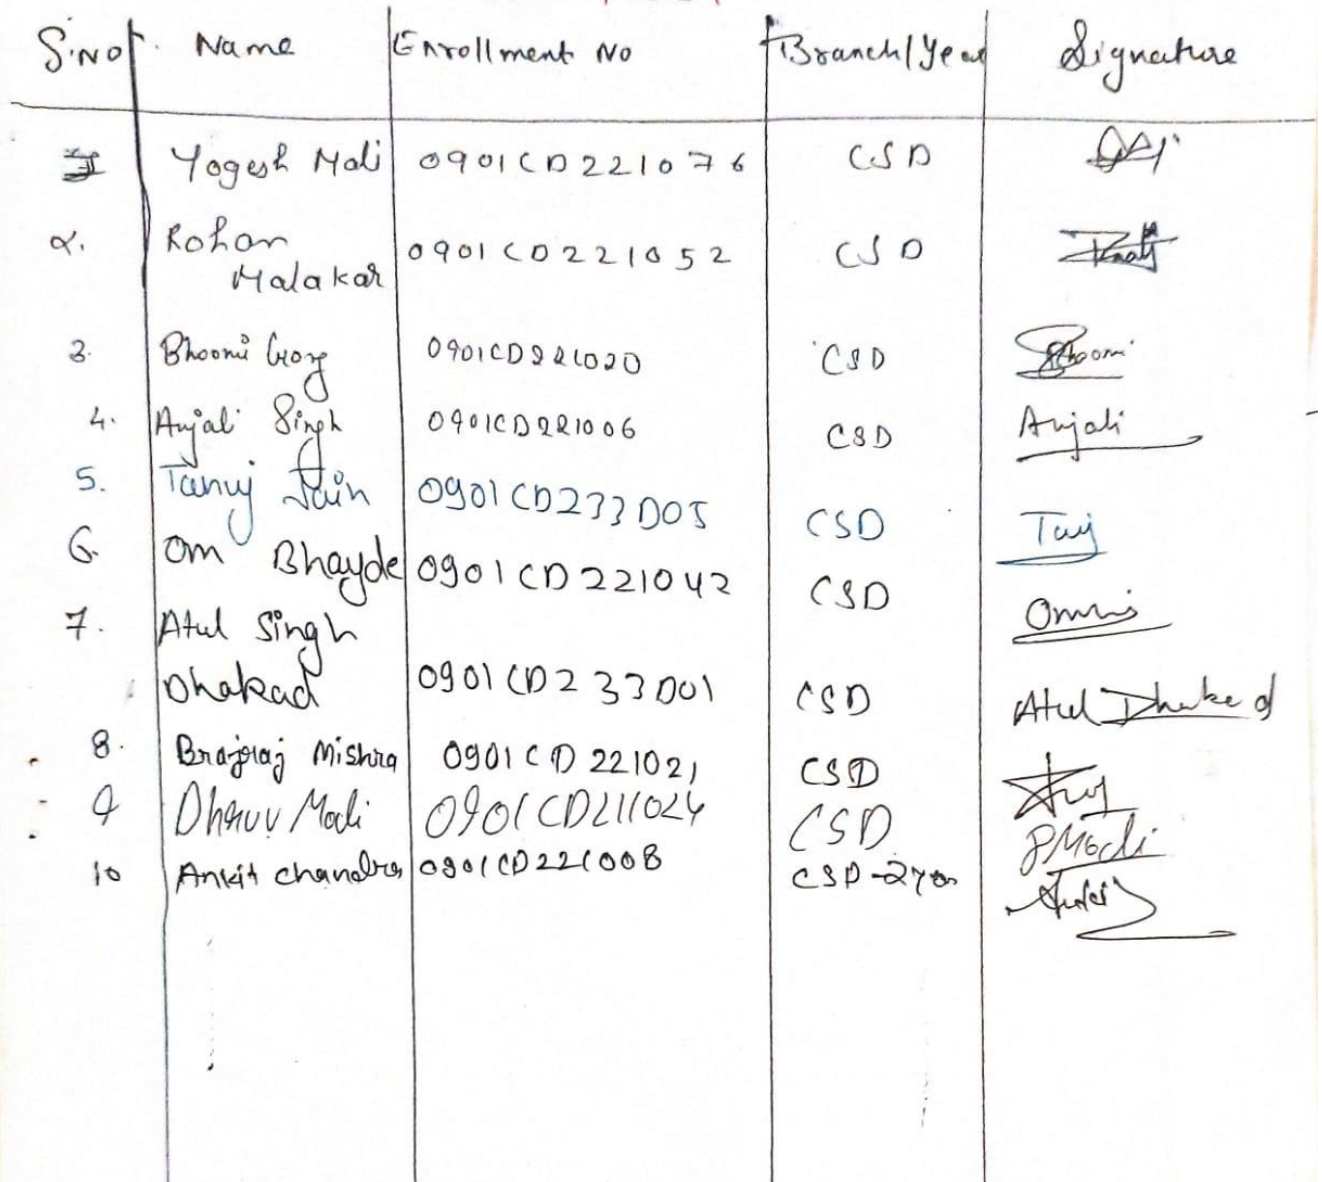 S.No. Name Enrollment No Branch/Year Signature
Yogesh Mali 0901CD221076 CSD
2. Rohan
Malakar 0901CD221052 CSD
3. Bhoomi Garg 0901CD221020 CSD Bhoomi
4. Anjali Singh 0901CD221006 CSD Anjali
5. Tanuj Jain 0901CD233D05 CSD Tanuj
6. Om Bhayde 0901CD221042 CSD
7. Atul Singh
Dhakad 0901CD233D01 CSD Atul Dhakad
8. Brajraj Mishra 0901CD221021 CSD
9 Dhruv Modi 0901CD211024 CSD DModi
10 Ankit chandra 0901CD221008 CSD-2